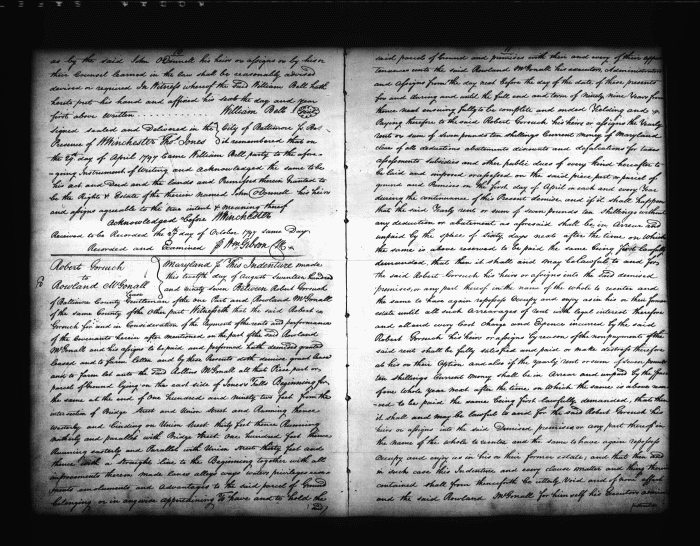 as by the said John O'Donnell his heirs or assigns or by his or
their Counsel learned in the law shall be reasonably advised
devised or required In Witness whereof the said William Ball hath
hereto put his hand and affixed his seal the day and year
first above written William Ball
signed sealed and Delivered in the City of Baltimore Be it
Presence of W Winchester Thos. Jones remembered that on
the day of April 1797 Came William Ball party to the afore
going Instrument of Writing and Acknowledged the same to be
his act and Deed and the Lands and Premises therein mentioned to
be the Right & Estate of the therein named John O'Donnell his heirs
and assigns agreeable to the true intent & meaning thereof
Acknowledged before W Winchester
Received to be Recorded the day of October 1797 same Day
Recorded and Examined Wm Gibson Clk
Robert Gorsuch
to
Rowland McGonall
Lease
Maryland This Indenture made
this twelfth day of August seventeen hundred
and ninety seven Between Robert Gorsuch
of Baltimore County Gentleman of the one Part and Rowland McGonall
of the same County of the other part Witnesseth that the said Robert
Gorsuch for and in Consideration of the Payment of the rents and performance
of the Covenants herein after mentioned on the part of the said Rowland
McGonall and his assigns to be paid and performed hath demised granted
leased and to farm letten and by these Presents doth demise grant lease
and to farm let unto the said McGonall all that Piece part or
parcel of Ground lying on the east side of Jones's Falls Beginning for
the same at the end of One hundred and ninety two feet from the
intersection of Bridge Street and Union Street and Running thence
westerly and binding on Union Street thirty feet thence Running
northerly and parallel with Bridge Street One hundred feet thence
Running easterly and Parallel with Union Street thirty feet and
thence with a straight line to the Beginning together with all
improvements thereon made lanes alleys ways waters priviliges
emoluments and advantages to the said parcel of Ground
belonging or in any wise appertaining To have and to hold the
said parcel of Ground and premises with their and every of their appur
tenances unto the said Rowland McGonall his executors Administrators
and Assigns from the day next before the day of the date of these presents
for and during and until the full end and term of Ninety Nine Years from
thence next ensuing fully to be complete and ended Yielding and
Paying therefor to the said Robert Gorsuch his heirs or assigns the Yearly
rent or sum of seven pounds ten shillings Current money of Maryland
clear of all deductions abatements discounts and defalcations for taxes
assessments subsidies and other public dues of every kind hereafter to
be laid and imposed or assessed on the said piece part or parcel of
ground and Premises on the first day of April in each and every Year
during the continuance of this Present demise and if it shall happen
that the said Yearly rent or sum of seven pounds ten shillings without
any deduction or abatement as aforesaid shall be in Arrear and
unpaid by the space of Sixty days next after the time on which
the same is above reserved to be paid the same being first lawfully
demanded, that then it shall and may be lawful to and for
the said Robert Gorsuch his heirs or assigns into the said demised
premises or any part thereof in the name of the whole to reenter and
the same to have again repossess Occupy and enjoy as in his or their former
estate until all such Arrearages of rent with legal interest therefore
and all and every Cost charge and Expence incurred by the said
Robert Gorsuch his heirs or assigns by reason of the nonpayment of the
said rent shall be fully satisfied and paid or make distress therefor
at his or their Option And also if the yearly rent or sum of seven pounds
ten shillings Current money shall be in Arrear and unpaid by the space
of one whole year next after the time on which the same is above reser
-ved to be paid the same being first lawfully demanded, that then
it shall and may be lawful to and for the said Robert Gorsuch his
heirs or assigns into the said Demised premises or any part thereof in
the name of the whole to reenter and the same to have again repossess
Occupy and enjoy as in his or their former estate, and that then and
in such case this Indenture and every clause matter and thing therein
contained shall from thenceforth be utterly Void and of none effect
and the said Rowland McGonall for himself his Executors